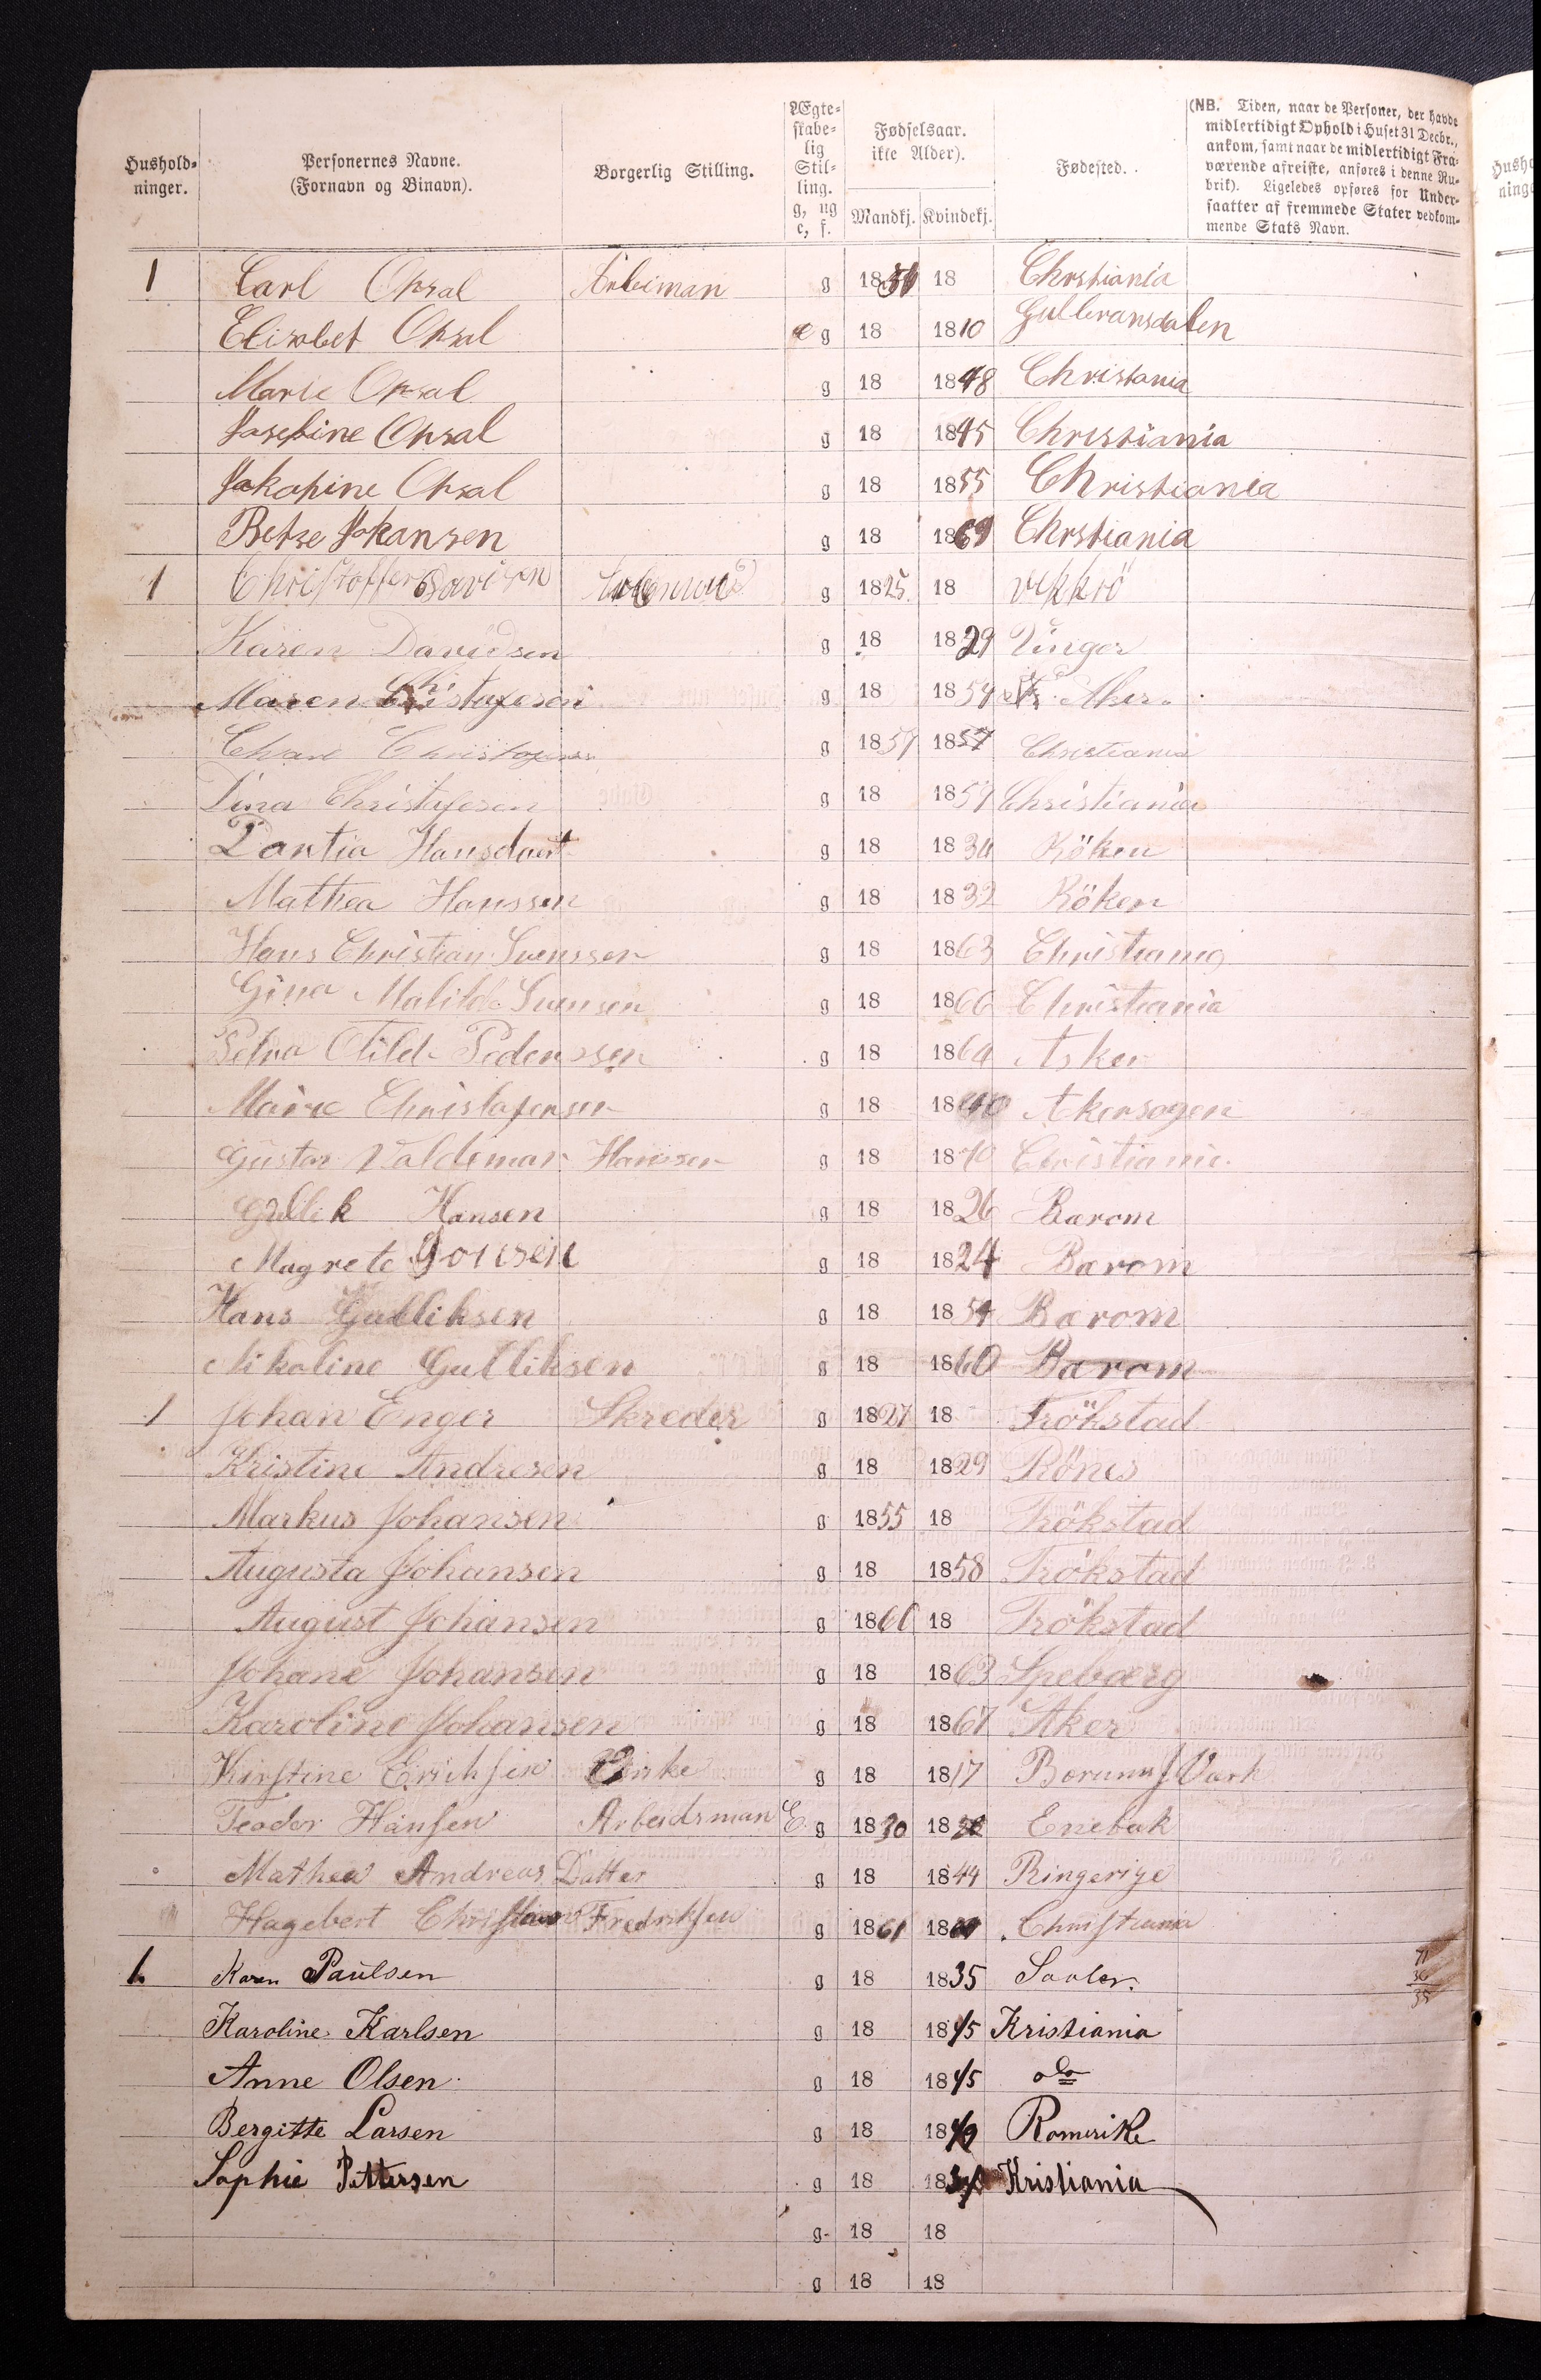 Hushold-ninger. Personernes Navne. (Fornavn og Binavn). Borgerlig Stilling. Ægte-skabe-lig Stil-ling. g, ug e, f. Fødselsaar. ikke Alder). Mandkj. Kvindekj. Fødested. (NB. Tiden, naar de Personer, der havde midlertidigt Ophold i Huset 31 Decbr., ankom, samt naar de midlertidigt Fra-værende afreiste, anføres i denne Ru-brik). Ligeledes opføres for Under-saatter af fremmede Stater vedkom-mende Stats Navn.
1 Carl Opsal Arbeiman g 18 18 Chrstiania
Elisabet Opsal e g 18 1810 Gulbransdalen
Marie Opsal g 18 1848 Christania
Josefine Opsal g 18 1845 Christiania
Jakopine Opsal g 18 1855 Christiania
Betse Johansen g 18 1869 Chrstiania
1 Christoffer g 1825 18
Karen Davidsen g 18 1829 Vinger
Maren Christofesen g 18 1854 Aker
g 1857 1857 Christiania
Dina Christofesen g 18 1859 Christiania
Dortia Hansdaart g 18 1834 Röken
Mathea Hanssen g 18 1832 Röken
Hans Christian Svenssen g 18 1863 Christiania
Gina Matilde Svensen g 18 1866 Christiania
Petra Otilde Pederssen g 18 1864 Asker
Marie Christofersen g 18 1840 Akersogen
Gustav Valdemar Hanssen g 18 1870 Christiania
Gullik Hansen g 18 1826 Barom
Magrete Jonsen g 18 1824 Barom
Hans Gulliksen g 18 1854 Barom
Nikoline Gulliksen g 18 1860 Barom
1 Johan Enger Skreder g 1827 18 Trökstad
Kristine Andresen g 18 1829 Rönes
Markus Johansen g 1855 18 Trökstad
Augusta Johansen g 18 1858 Trökstad
August Johansen g 1860 18 Trökstad
Johane Johansen g 18 1863 Speberg
Karoline Johansen g 18 1867 Aker
Kirstine Erichsen Enke g 18 1817 Borums Værk
Teodor Hansen Arbeidsman E g 1830 18 Enebak
Mathea Andreas Datter g 18 1844 Ringerige
Hagebert Christian Fredriksen g 1861 18 Christiania
1. Karen Paulsen g 18 1835 Saaler. 71 36 35
Karoline Karlsen g 18 1845 Kristiania
Anne Olsen g 18 1845 do
Bergitte Larsen g 18 1849 Romerike
Sophie Pettersen g 18 18 Kristiania
g 18 18
g 18 18